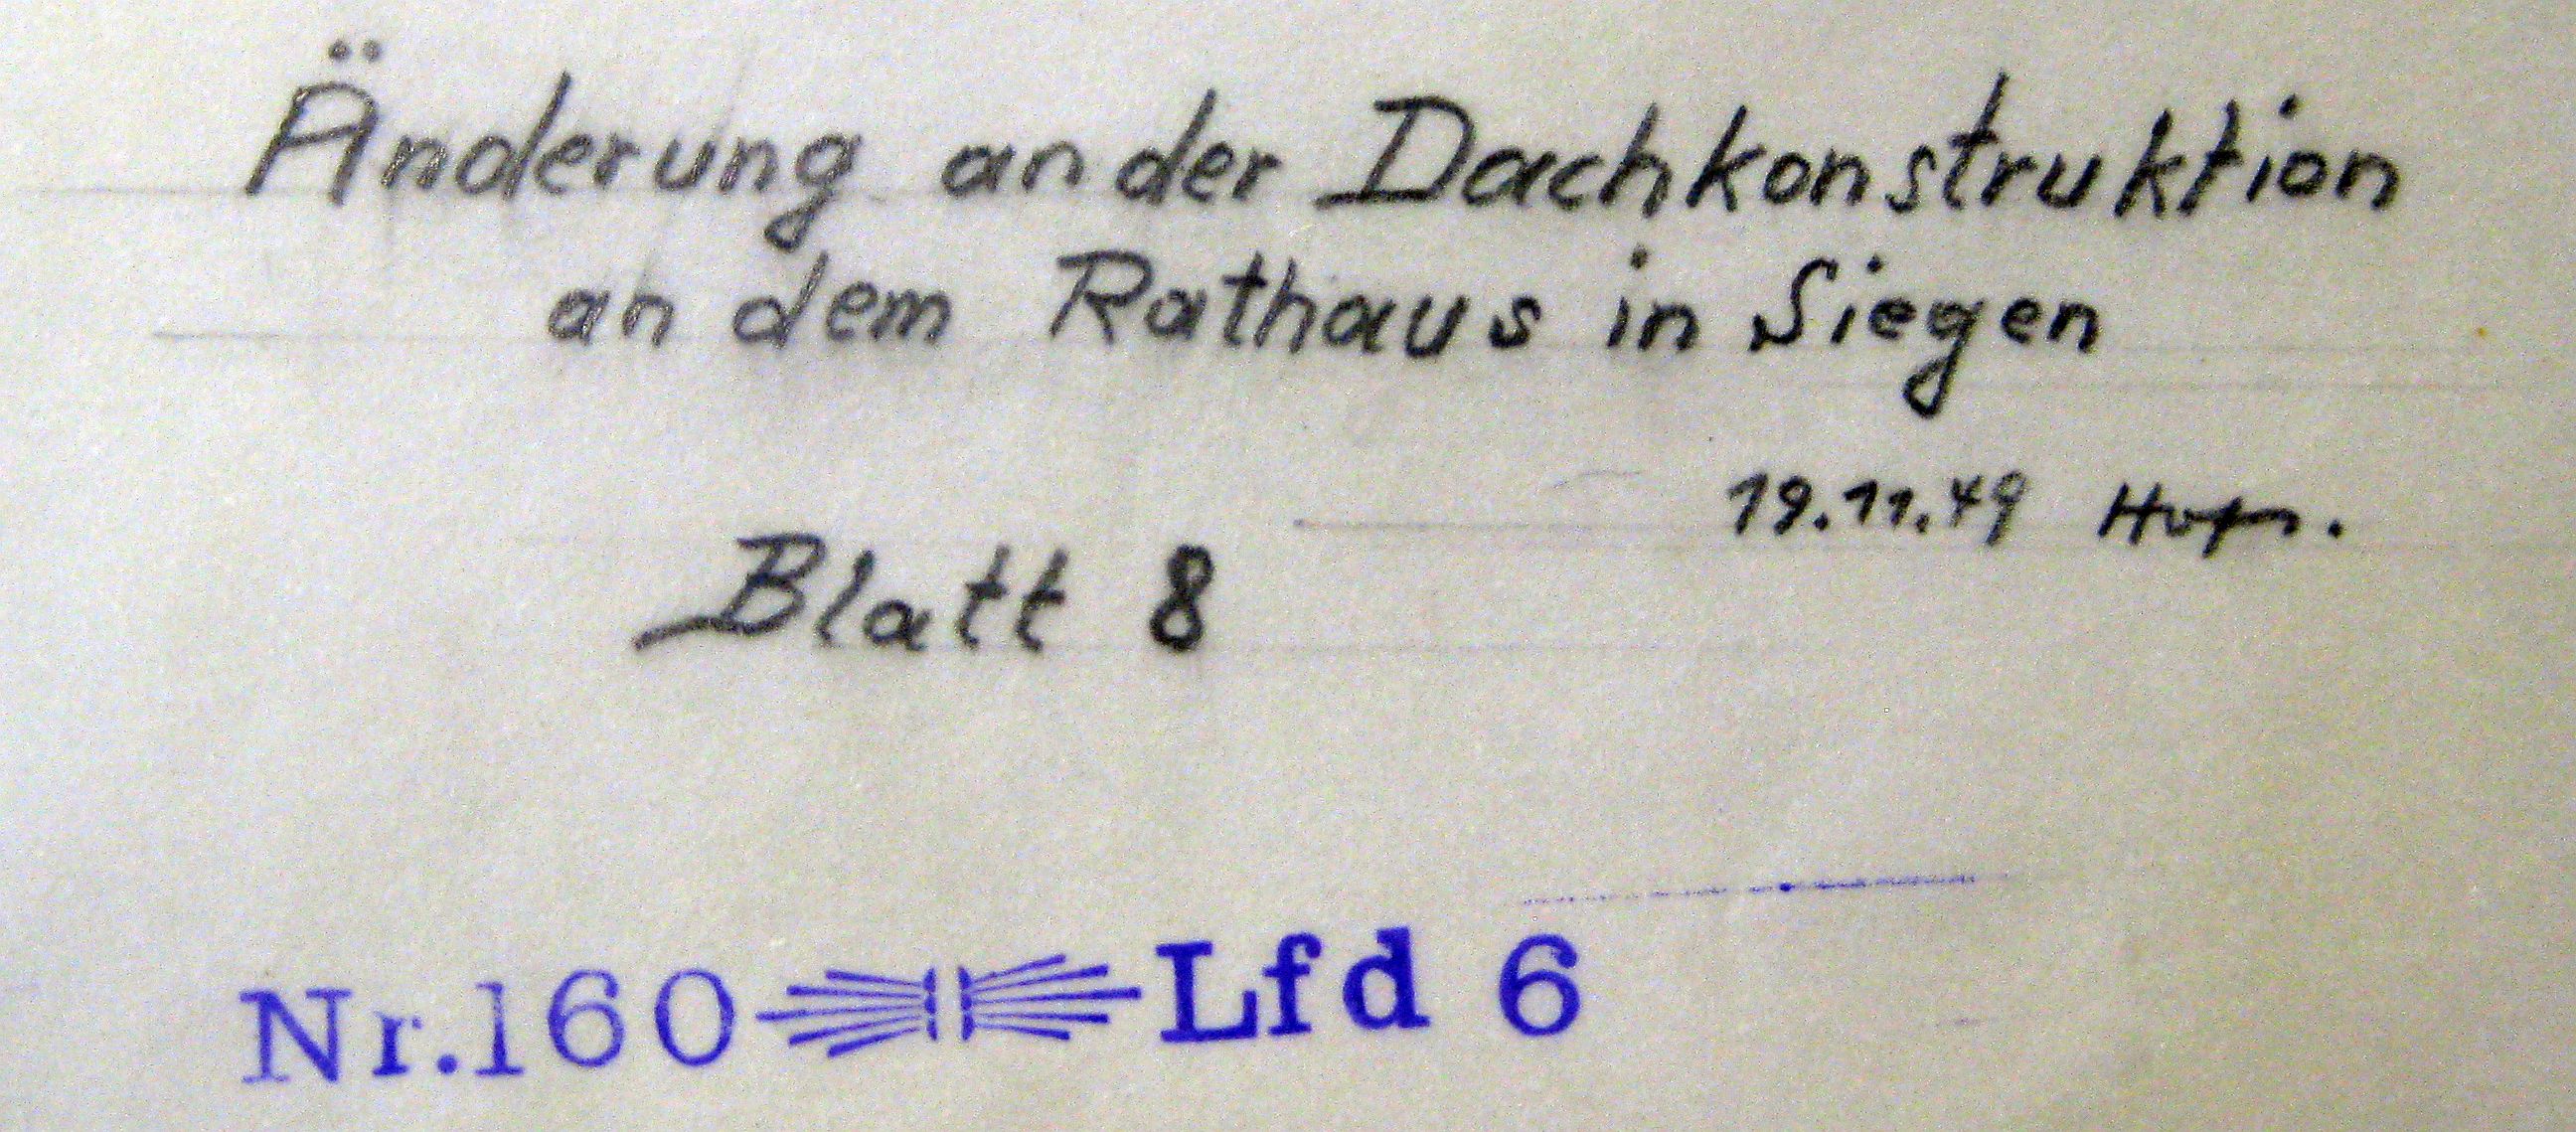 Änderung an der Dachkonstruktion
an dem Rathaus in Siegen
19.11.49
Blatt 8
Nr.160 Lfd 6